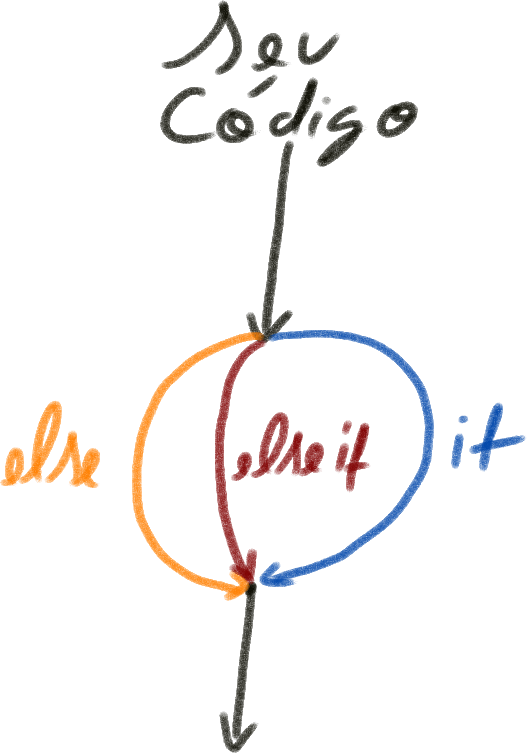 Seu
Código
else
else if
if